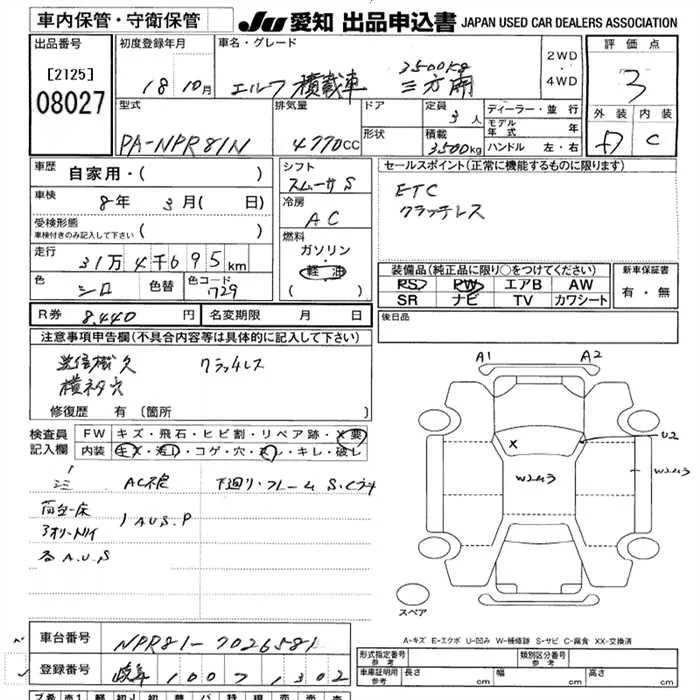 車内保管・守衛保管
JU 愛知 出品申込書 JAPAN USED CAR DEALERS ASSOCIATION
出品番号
[2125]
08027
初度登録年月
18年10月
車名・グレード
エルフ 積載車 3500kg
三方開
2WD
・
4WD
評価点
3
外装 内装
C
型式
PA-NPR81N
排気量
4770CC
ドア
形状
定員
3人
積載
3500kg
ディーラー・並行
モデル年式 年
ハンドル 左・右
車歴
自家用・( )
車検
8年 3月( 日)
受検形態
車検付きのみ記入して下さい ( )
走行
31万4千695km
色
シロ
色替
色コード
729
シフト
スムーサS
冷房
AC
燃料
ガソリン・
軽油
( )
セールスポイント(正常に機能するものに限ります)
ETC
クラッチレス
装備品(純正品に限り○をつけてください)
PS PW エアB AW
SR ナビ TV カワシート
新車保証書
有・無
R券 8,440円
名変期限 月 日
後日品
注意事項申告欄(不具合内容等は具体的に記入して下さい)
クラッチレス
修復歴 有 [箇所 ]
検査員
記入欄
FW キズ・飛石・ヒビ割・リペア跡・X要
内装 キズ・汚れ・コゲ・穴・スレ・キレ・破レ
下廻り・フレーム S.C
1 AUS.P
A.U.S
A1
A2
X
U2
W2U3
W2U3
スペア
A-キズ E-エクボ U-凹み W-補修跡 S-サビ C-腐食 XX-交換済
車台番号
NPR81-7026581
登録番号
100 1302
形式指定番号
参考
類別区分番号
参考
車庫証明用
参考
長さ cm
幅 cm
高さ cm